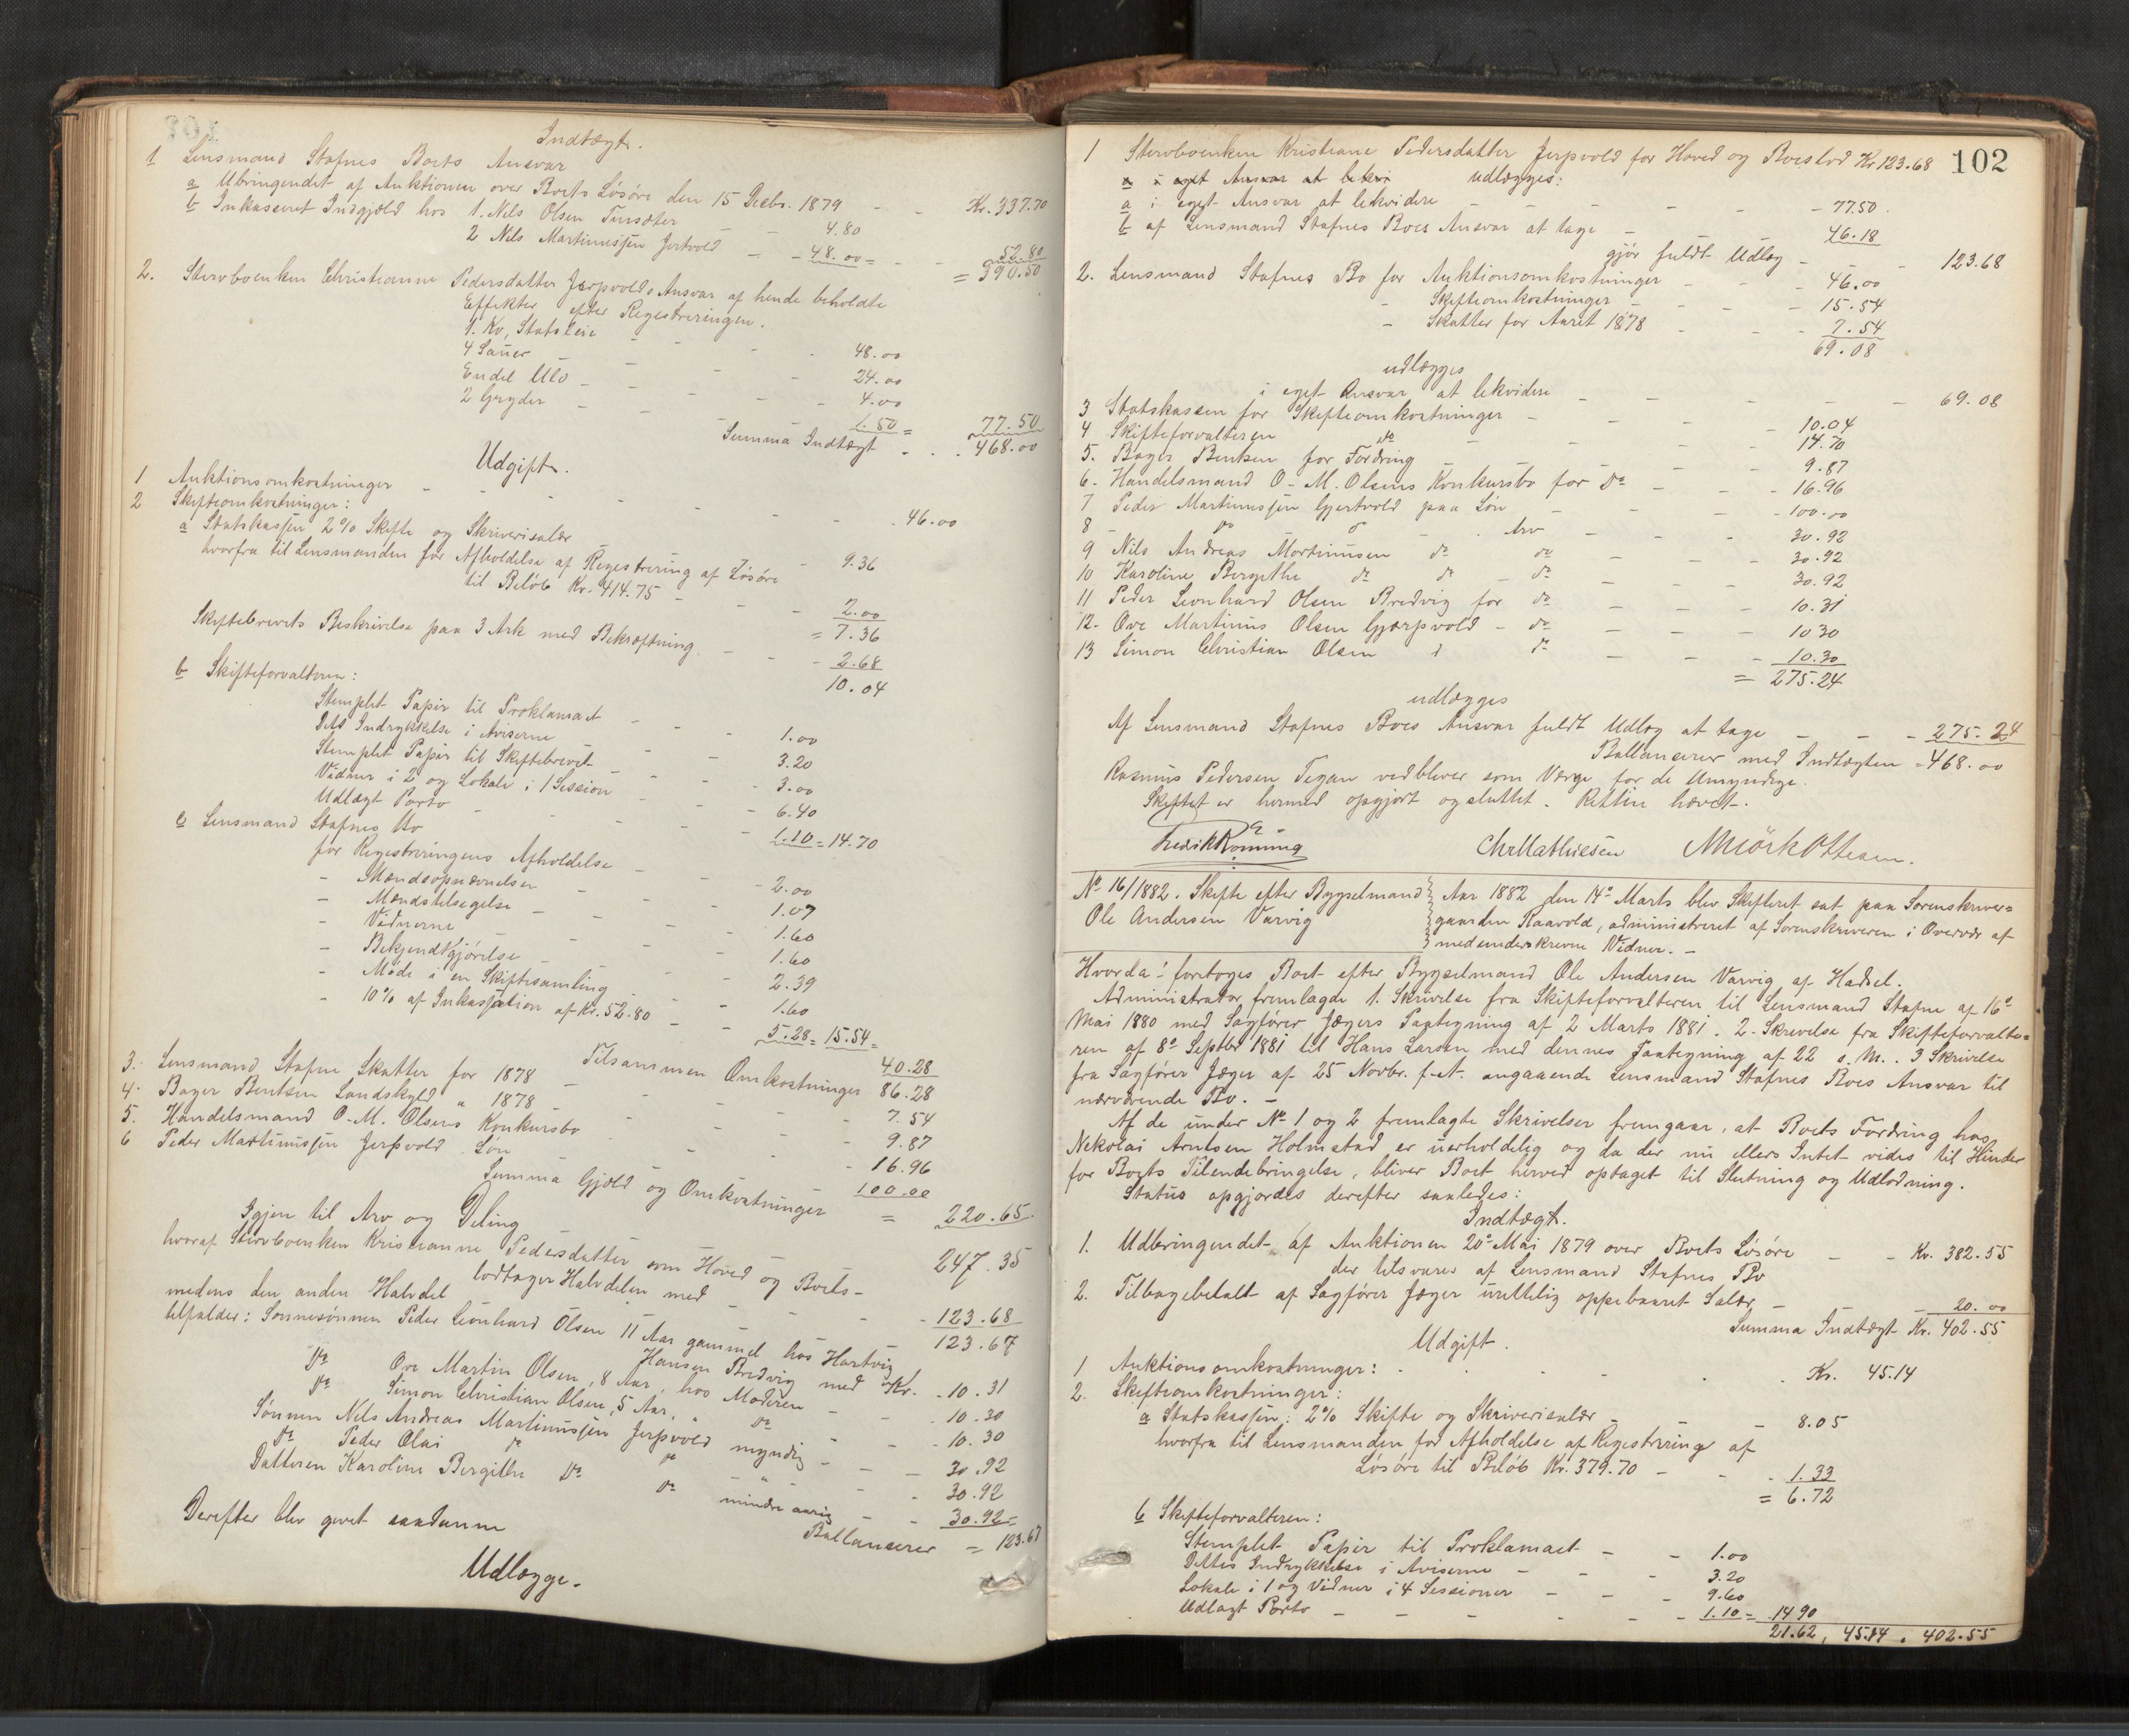 Indtægt.
1 Lensmand Stofnes Boets Ansvar
a Udbringendet af Auktionen over Boets Løsøre den 15 Decbr. 1879 - - Kr. 337.70
b Inkasseret Indgjæld hos 1. Nils Olsen - - 4.80
2 Nils Martinussen Jertvold - - 48.00 = - - 52.80
= 390.50
2. Stervboenken Christianne Pedersdatter Jerpvolds Ansvar af hende beholdte
Effekter efter Registreringen.
1. Ko, Statsleie - - - 48.00
4 Sauer - - - 24.00
Endel Uld - - - 4.00
2 Gryder - - - 1.50 = 77.50
Summa Indtægt . . . 468.00
Udgift.
1 Auktionsomkostninger - - - - - - 46.00
2 Skifteomkostninger:
a Statskassen 2% Skifte og Skriversalær - 9.36
hvorfra til Lensmanden for Afholdelse af Registrering af Løsøre
til Beløb Kr. 414.75 - - - 2.00
= 7.36
Skiftebrevets Beskrivelse paa 3 Ark med Bekræftning - - - 2.68
10.04
b Skifteforvalteren:
Stemplet Papir til Proklamaet - - - 1.00
Dets Indrykkelse i Aviserne - - - 3.20
Stemplet Papir til Skiftebrevet - - - 3.00
Vidner i 2 og Lokale i 1 Session - - 6.40
Udlagt Porto - - - - 1.10 = 14.70
c Lensmand Stofnes Bo
for Registreringens Afholdelse - - 2.00
- Mændsopnævnelsen - - 1.07
- Mændstilsigelse - - 1.60
- Vidnerne - - - 1.60
- Bekjendtgjørelse - - - 2.39
- Møde i en Skiftesamling - - 1.60
- 10% af Inkassation af Kr. 52.80 - - 5.28 = 15.54 =
40.28
Tilsammen Omkostninger 86.28
3. Lensmand Stofne Skatter for 1878 - - - 7.54
4. Bager Bentsen Landskyld " 1878 - - - 9.87
5. Handelsmand O. M. Olsens Konkursbo - - - 16.96
6 Peder Martinussen Jerpvold Løn - - - 100.00
Summa Gjæld og Omkostninger = 220.65.
Igjen til Arv og Deling 247.35
hvoraf Stervboenken Kristianne Pedersdatter som Hoved og Boets-
lodtager Halvdelen med - - - 123.68
medens den anden Halvdel 123.67
tilfalder: Sønnesønnen Peder Leonhard Olsen 11 Aar gammel hos Hartvig
Hansen Bredvig med Kr. - 10.31
Do Ove Martin Olsen, 8 Aar, hos Moderen - - 10.30
Do Simon Christian Olsen, 5 Aar, " Do - - 10.30
Sønnen Nils Andreas Martinussen Jerpvold myndig - - 30.92
Do Peder Olai Do Do " - - 30.92
Datteren Karoline Bergithe Do Do mindreaarig - - 30.92 =
Ballancerer = 123.67
Derefter blev gjort saadanne
Udlægge.
102
1 Stervboenken Kristiane Pedersdatter Jerpvold for Hoved og Boeslod Kr 123.68
a i eget Ansvar at lekvi udlægges:
a i eget Ansvar at lekvidere - - - - 77.50.
b af Lensmand Stofnes Boes Ansvar at tage - - 46.18
gjør fuldt Udlæg - - - 123.68
2. Lensmand Stofnes Bo for Auktionsomkostninger - - - 46.00
- Skifteomkostninger - - - 15.54
- Skatter for Aaret 1878 - - - 7.54
69.08
udlægges
i eget Ansvar at lekvidere - - - - 69.08
3 Statskassen for Skifteomkostninger - - - 10.04
4 Skifteforvalteren Do - - - 14.70
5. Bager Bentsen for Fordring - - - 9.87
6. Handelsmand O. M. Olsens Konkursbo for Do - - - 16.96
7 Peder Martinussen Gjertvold paa Løn - - - 100.00
8 - Do - Arv - - - 30.92
9 Nils Andreas Martinusen do do - - - 30.92
10 Karoline Bergithe do do - do - - - 30.92
11 Peder Leonhard Olsen Bredvig for do - - - 10.31
12. Ove Martinus Olsen Gjærpvold - do - - - 10 30
13 Simon Christian Olsen do - - - 10.30
= 275.24
udlægges
Af Lensmand Stofnes Boes Ansvar fuldt Udlæg at tage - - - 275.24
Ballancerer med Indtægten = 468.00
Rasmus Pedersen Tegan vedbliver som Værge for de Umyndige.
Skiftet er hermed opgjort og sluttet. Retten hævet.
Fredrik Rømming Chr Mathiesen A Mörk Ottesen.
No 16/1882. Skifte efter Bygselmand Ole Andersen Varvig
Aar 1882 den 14de Marts blev Skifteret sat paa Sorenskriver=
gaarden Raavold, administreret af Sorenskriveren i Overvær af
medunderskrevne Vidner. -
Hvorda: foretoges Boet efter Bygselmand Ole Andersen Varvig af Hadsel.
Administrator fremlagde 1. Skrivelse fra Skifteforvalteren til Lensmand Stofne af 16de
Mai 1880 med Sagfører Jægers Paategning af 2 Marts 1881. 2. Skrivelse fra Skifteforvalte=
ren af 8de Septbr 1881 til Hans Larsen med dennes Paategning af 22 s. M.. 3 Skrivelse
fra Sagfører Jæger af 25 Novbr. f. A. angaaende Lensmand Stofnes Boes Ansvar til
nærværende Bo. -
Af de under No 1 og 2 fremlagte Skrivelser fremgaar, at Boets Fordring hos
Nekolai Arntsen Holmstad er uerholdelig og da der nu ellers Intet vides til Hinder
for Boets Tilendebringelse, bliver Boet herved optaget til Slutning og Udlodning.
Status opgjordes derefter saaledes:
Indtægt.
1. Udbringendet af Auktionen 20de Mai 1879 over Boets Løsøre - - Kr. 382.55
der tilsvares af Lensmand Stofnes Bo
2. Tilbagebetalt af Sagfører Jæger urettelig oppebaaret Salær - - - 20.00
Summa Indtægt Kr. 402.55
Udgift.
1 Auktionsomkostninger: . . . . Kr. 45.14
2. Skifteomkostninger:
a Statskassen: 2% Skifte og Skriversalær - - - 8.05
hvorfra til Lensmanden for Afholdelse af Registrering af
Løsøre til Beløb Kr. 379.70 - - - 1.33
= 6.72
b Skifteforvalteren:
Stemplet Papir til Proklamaet - - 1.00
Dettes Indrykkelse i Aviserne - - - 3.20
Lokale i 1 og Vidner i 4 Sessioner - - - 9.60
Udlagt Porto - - - - - 1.10 = 14.90
21.62, 45.14. 402.55